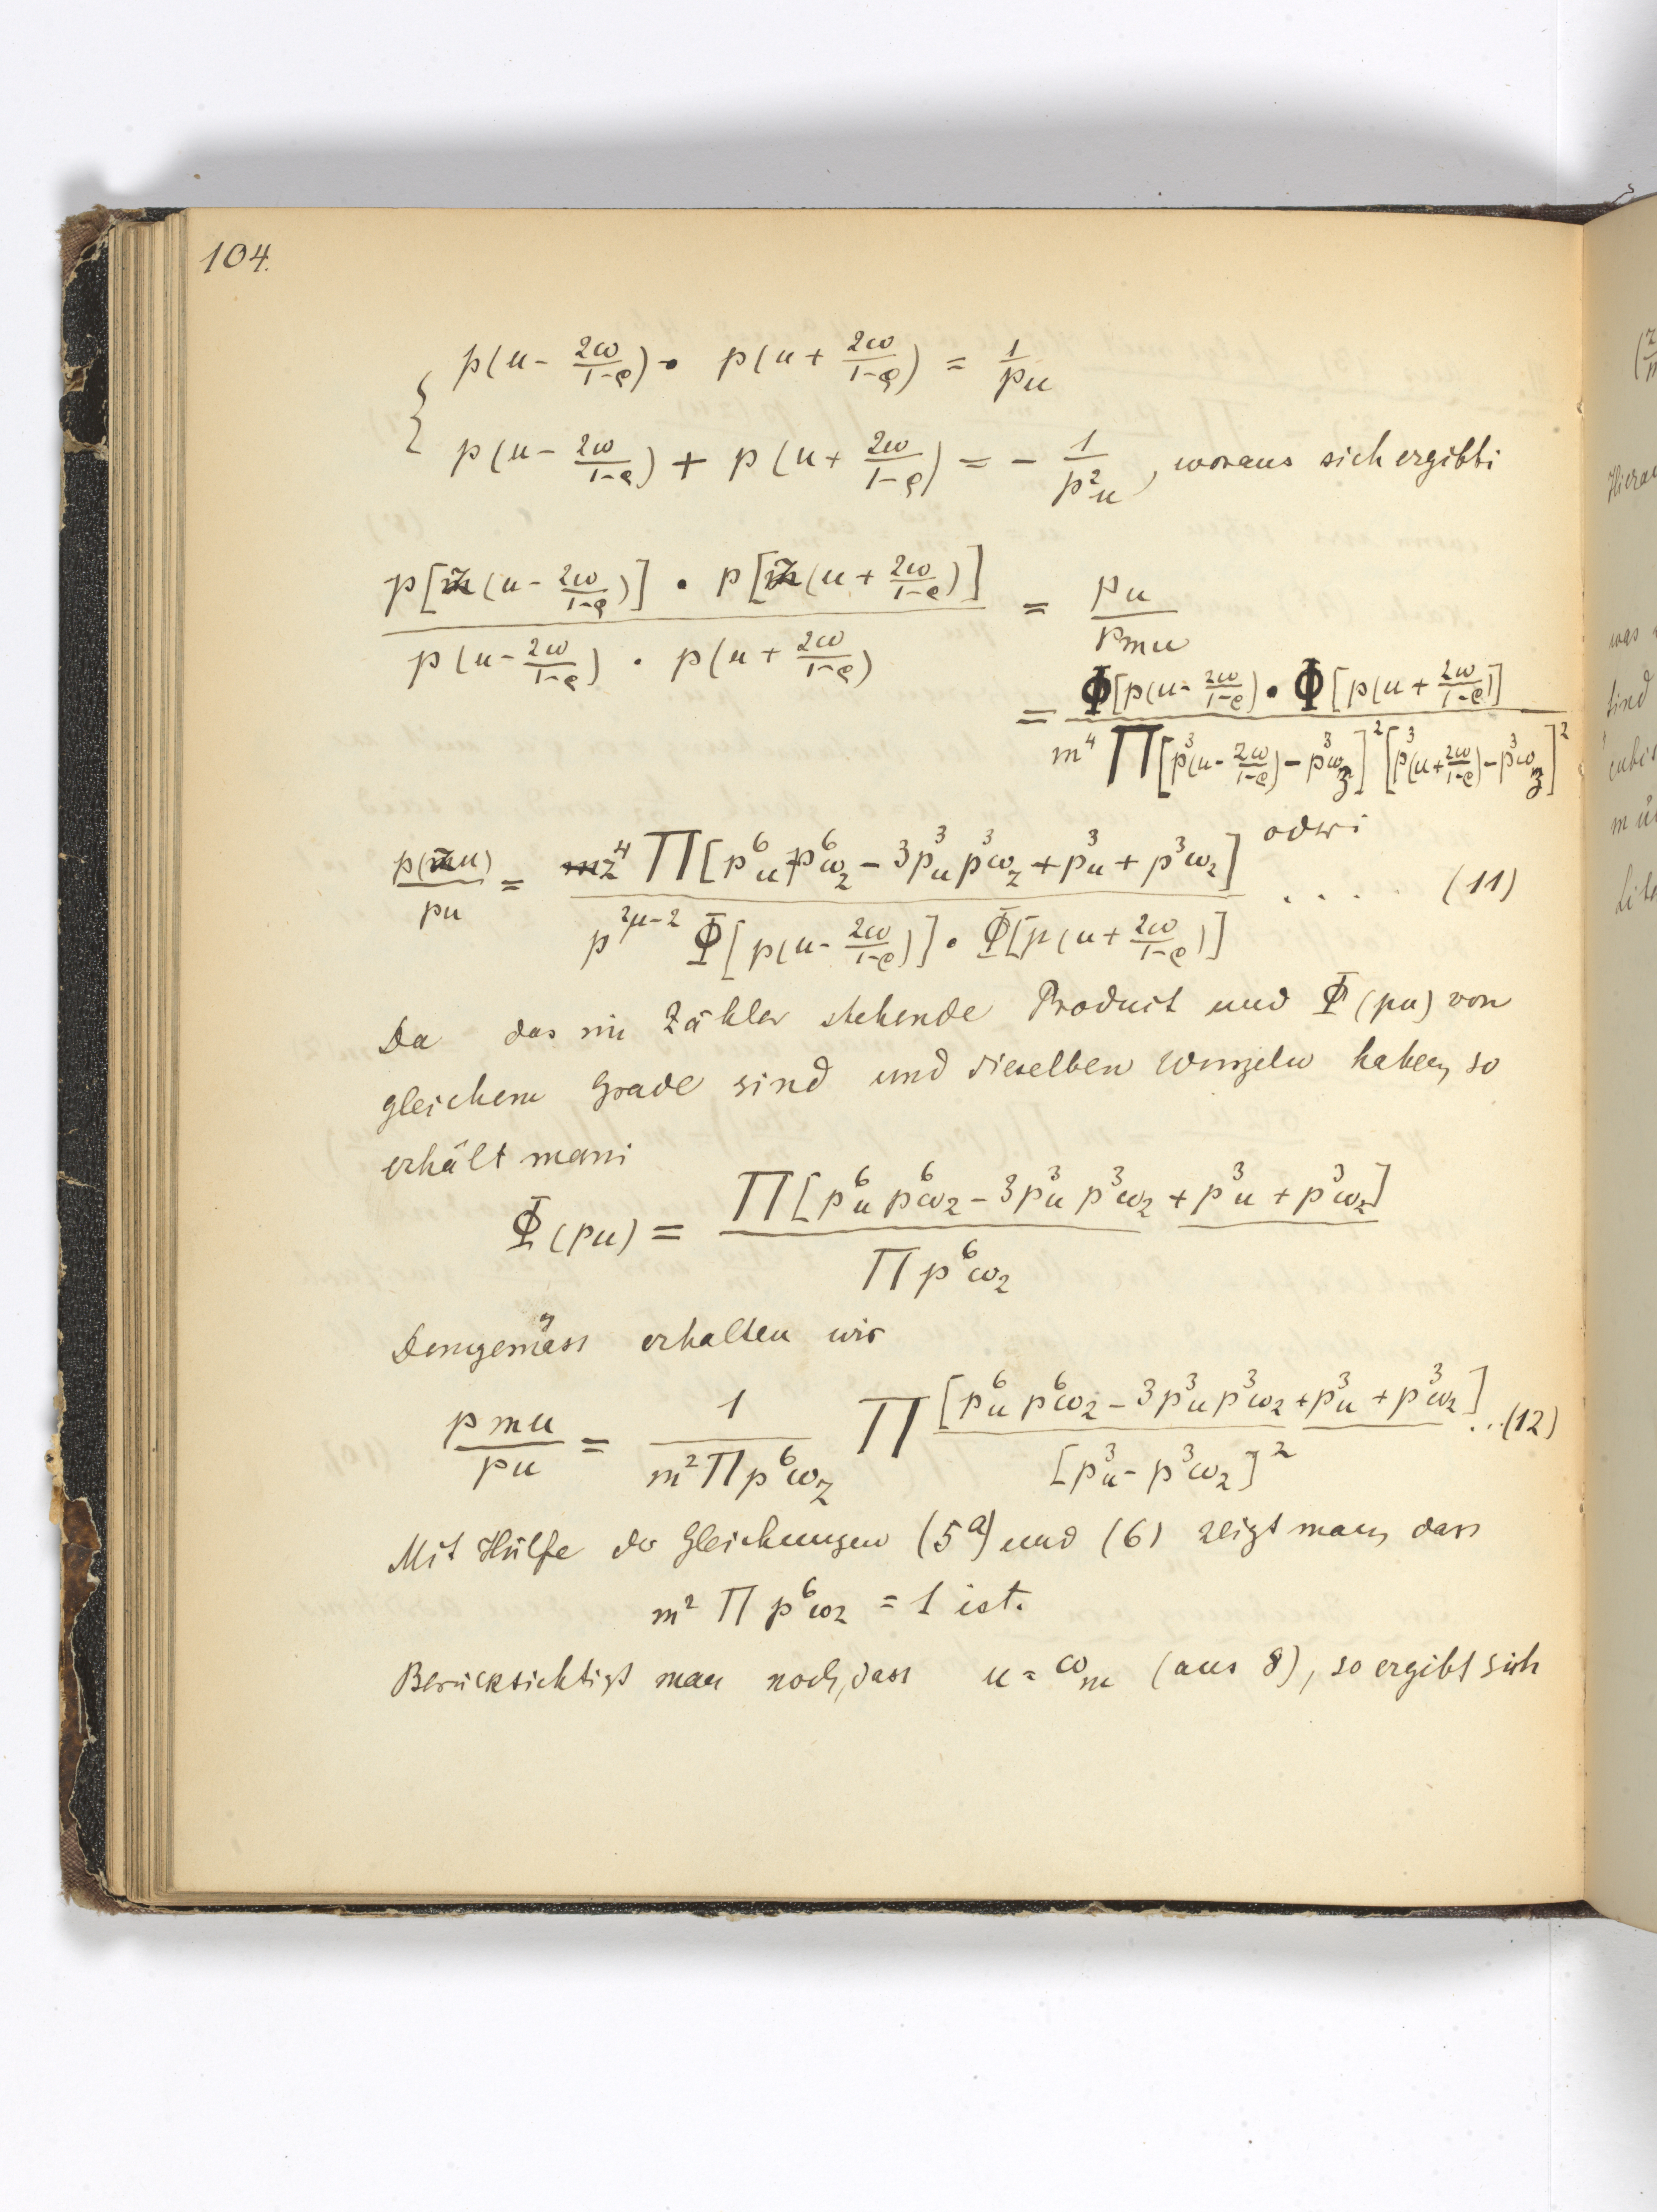 104.
{ p(u - 2ω/(1-ϱ)) · p(u + 2ω/(1-ϱ)) = 1/pu
p(u - 2ω/(1-ϱ)) + p(u + 2ω/(1-ϱ)) = - 1/p²u, woraus sich ergibt:
p[m(u - 2ω/(1-ϱ))] · p[m(u + 2ω/(1-ϱ))] / p(u - 2ω/(1-ϱ)) · p(u + 2ω/(1-ϱ)) = pu/pmu
= Φ[p(u - 2ω/(1-ϱ)) · Φ[p(u + 2ω/(1-ϱ))] / m⁴ Π[p³(u - 2ω/(1-ϱ)) - p³ω₃]² [p³(u + 2ω/(1-ϱ)) - p³ω₃]²
oder:
p(mu)/pu = m⁴ Π[p⁶u p⁶ω₂ - 3p³u p³ω₂ + p³u + p³ω₂] / p^(2μ-2) Φ[p(u - 2ω/(1-ϱ))] · Φ[p(u + 2ω/(1-ϱ))] .... (11)
Da das im Zähler stehende Product und Φ(pu) von
gleichem Grade sind und dieselben Wurzeln haben, so
erhält man:
Φ(pu) = Π[p⁶u p⁶ω₂ - 3p³u p³ω₂ + p³u + p³ω₂] / Π p⁶ω₂
Demgemäss erhalten wir
pmu/pu = 1/(m² Π p⁶ω₂) Π [p⁶u p⁶ω₂ - 3p³u p³ω₂ + p³u + p³ω₂] / [p³u - p³ω₂]² ..(12)
Mit Hülfe der Gleichungen (5a) und (6) zeigt man, dass
m² Π p⁶ω₂ = 1 ist.
Berücksichtigt man noch, dass u = ωm (aus 8), so ergibt sich